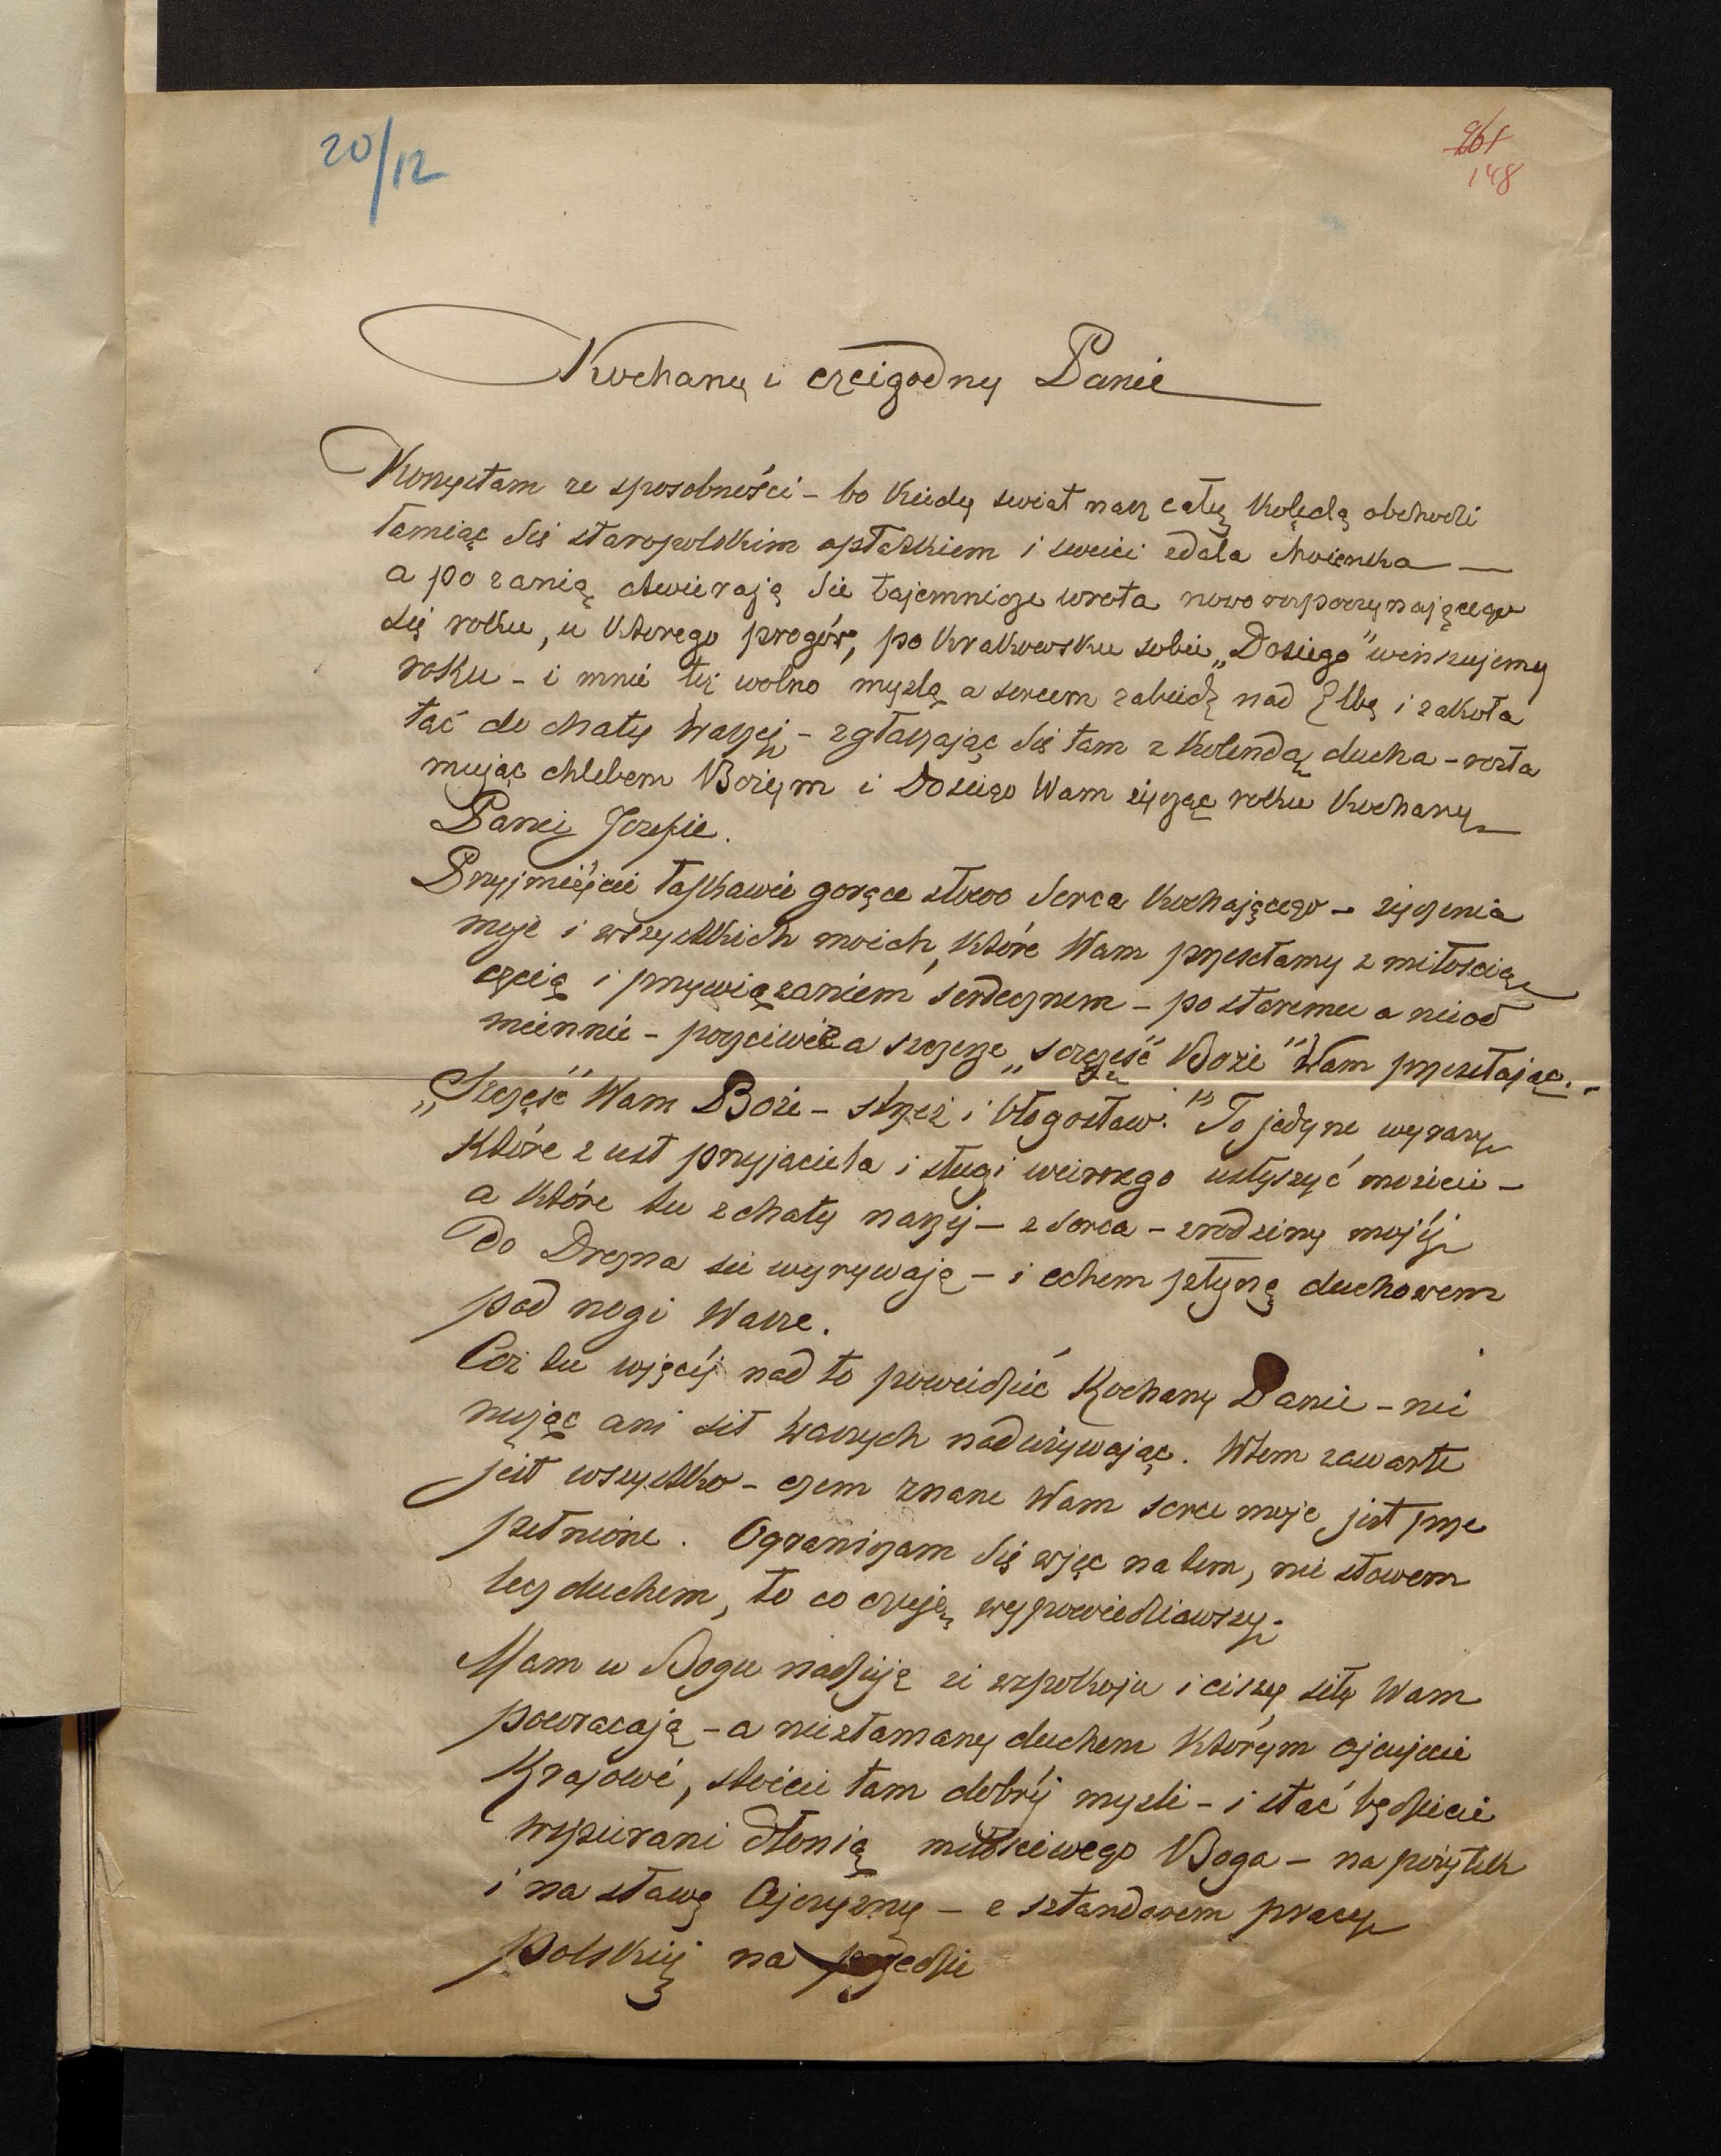 20/12
261
148
Kochany i czcigodny Panie
Korzystam ze sposobności – bo kiedy swiat nasz cały kolędą obchodzi
łamiąc się staropolskim opłatkiem i swieci zdala choienka —
a po zanią otwierają sie tajemnicze wrota nowo rozpoczynającego
się roku, u ktorego progów, po krakowsku sobie „Dosiego" winszujemy
roku – i mnie też wolno myslą a sercem zabiedz nad Elbę i zakoła
tać do chaty Waszej – zgłaszając się tam z kolendą ducha – rozła
mując chlebem Bożym i Dosiego Wam życząc roku Kochany
Panie Jozefie.
Przyjmiéjcie łaskawie gorące słowo serca kochającego – życzenia
moje i wszystkich moich, które Wam przesełamy z miłoscią
czcią i przywiązaniem serdecznem – po staremu a nieod
miennie – poczciwie a szczerze „szczęść Boże" Wam przesełając. –
„Szczęść Wam Boże – strzeż i błogosław." To jedyne wyrazy
które z ust przyjaciela i sługi wiernego usłyszyć możecie –
a które tu z chaty naszej – z serca – z rodziny mojéj
do Drezna sie wyrywają – i echem płyną duchowem
pod nogi Wasze.
Coż tu więcéj nad to powiedzieć Kochany Panie – nie
nużąc ani sił Waszych nadużywając. W tem zawarte
jest wszystko – czem znane Wam serce moje jest prze
pełnione. Ograniczam się więc na tem, nie słowem
lecz duchem, to co czuję wypowiedziawszy.
Mam w Bogu nadzieję że w spokoju i ciszy siły Wam
powracają – a niezłamany duchem którym ojcujecie
Krajowi, stoicie tam dobréj mysli – i stać będziecie
wspierani dłonią miłosciwego Boga – na pożytek
i na sławę Ojczyzny – z sztandarem pracy
polskiej na przedzie